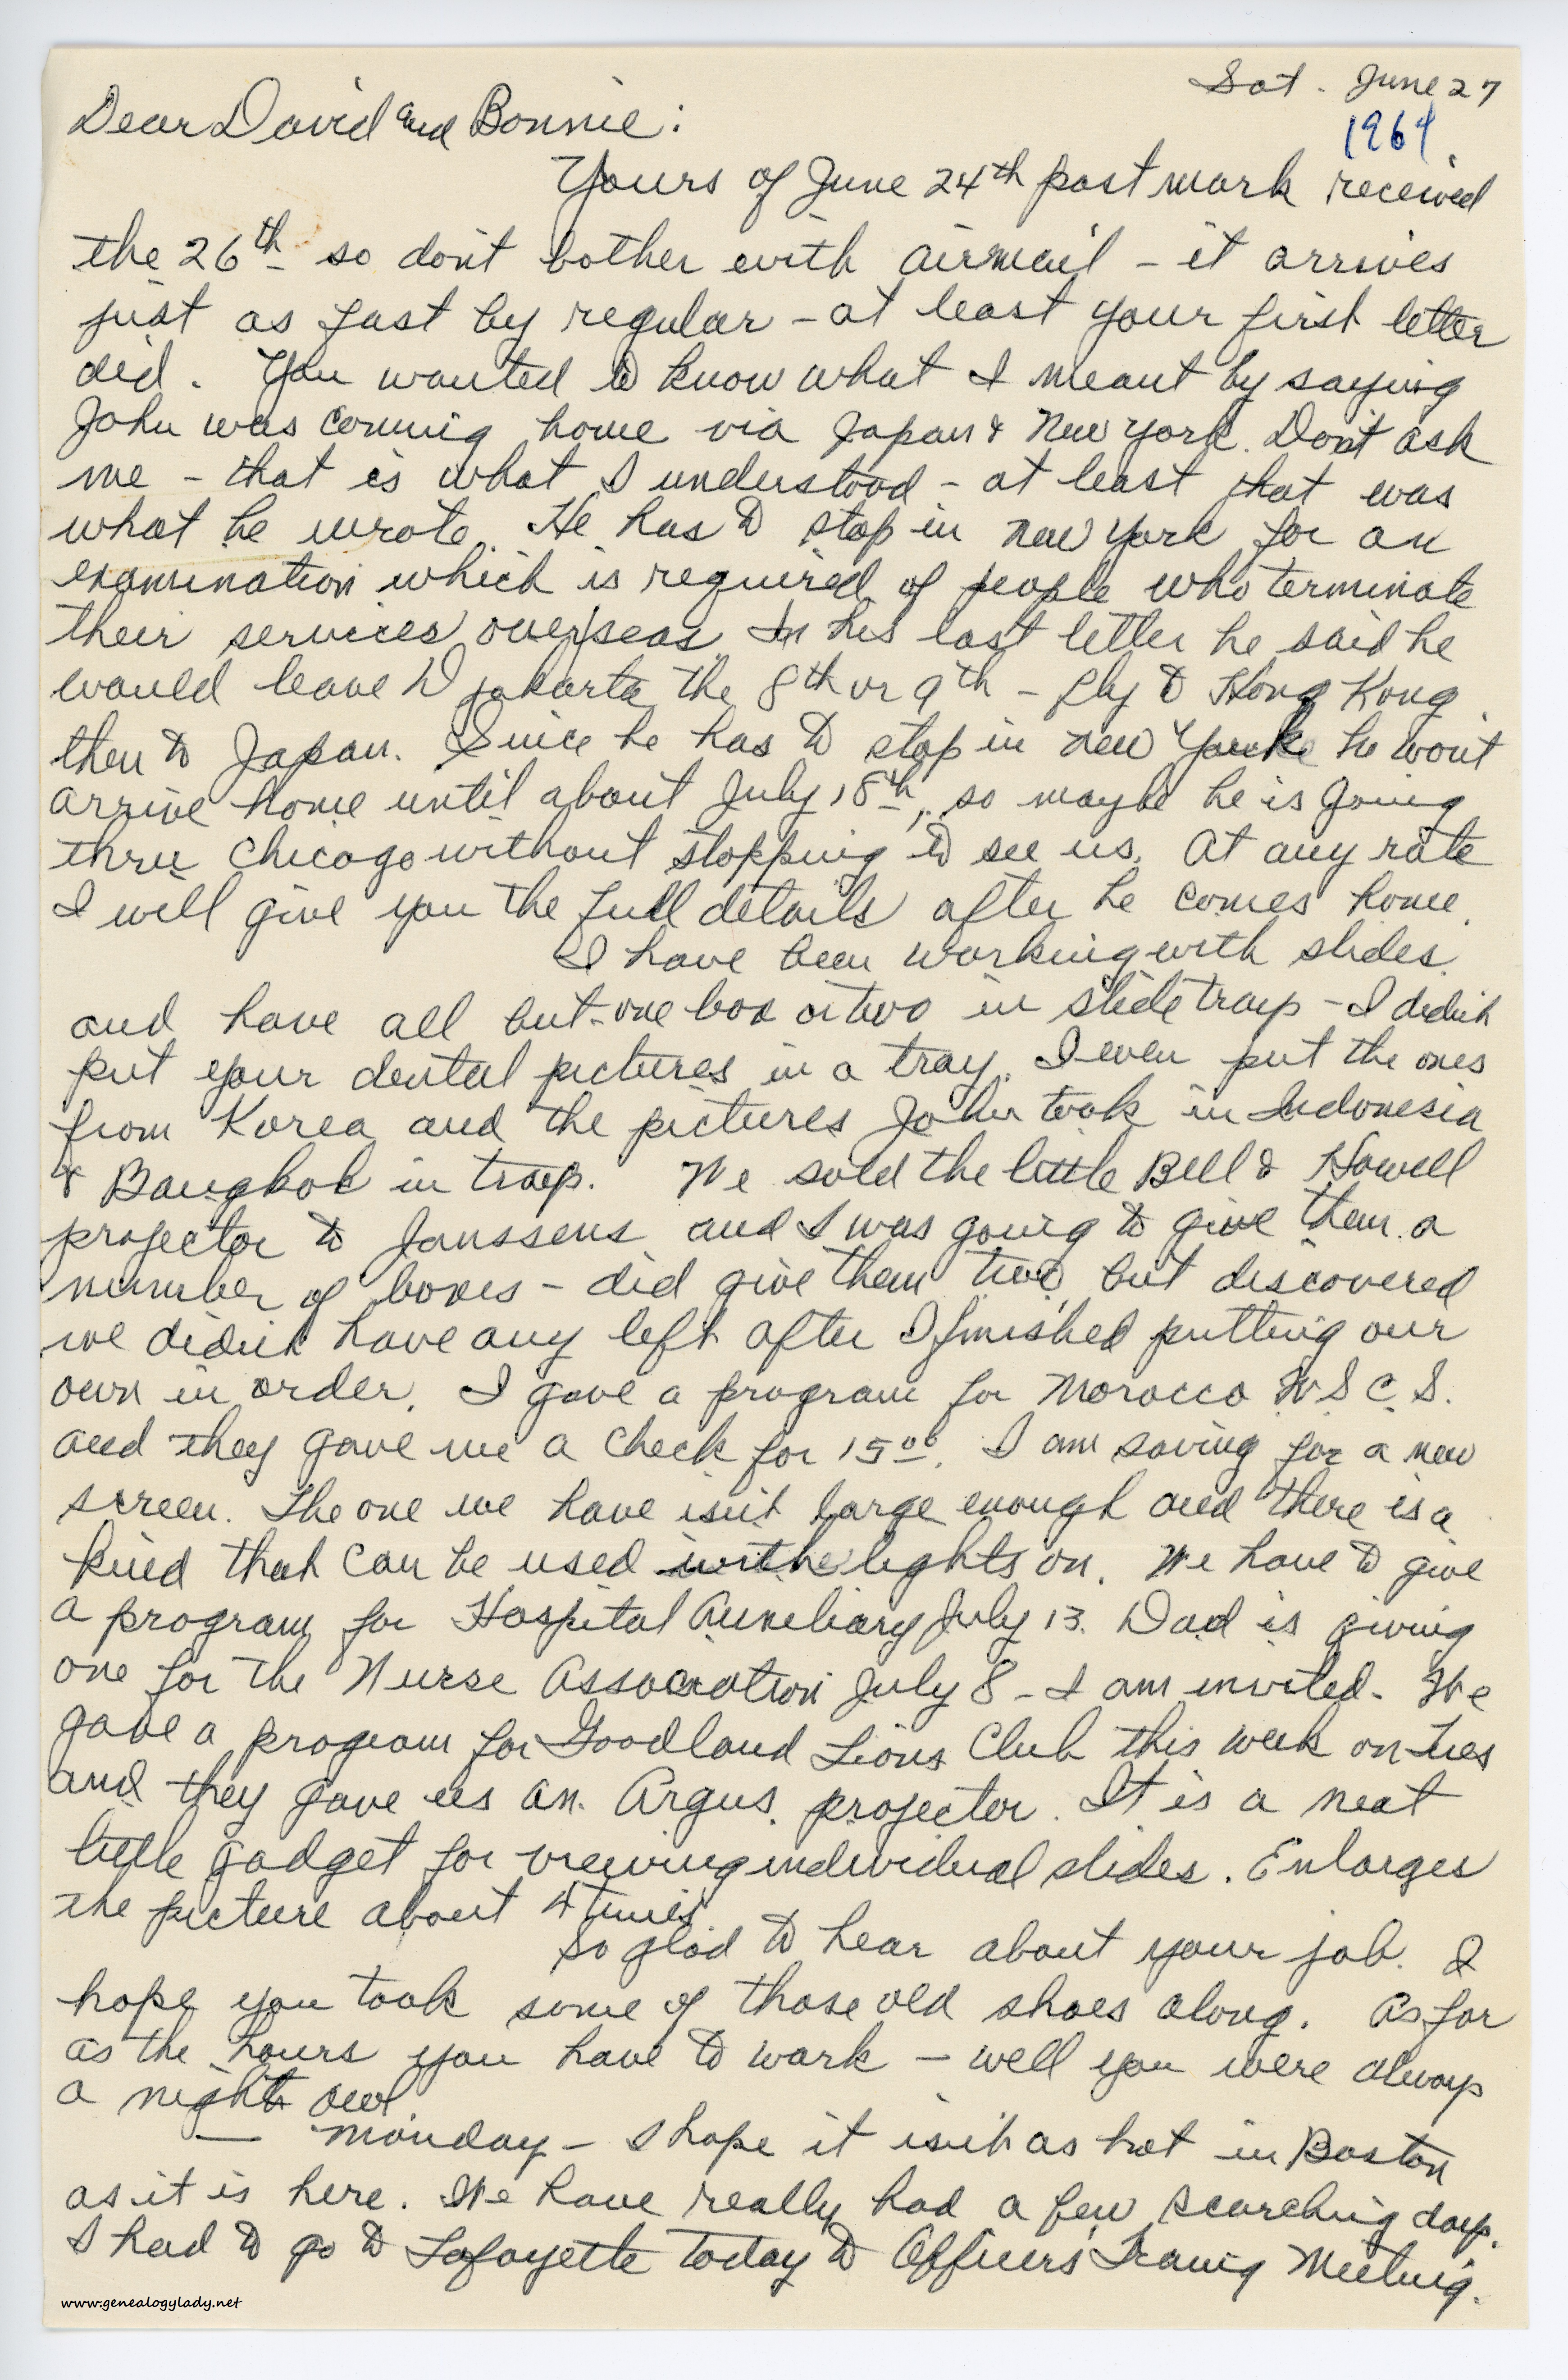 Sat. June 27
1964
Dear David and Bonnie:
Yours of June 24th post mark received
the 26th so don't bother with airmail - it arrives
just as fast by regular - at least your first letter
did. You wanted to know what I meant by saying
John was coming home via Japan & New York. Don't ask
me - that is what I understood - at least that was
what he wrote. He has to stop in New York for an
examination which is required of people who terminate
their services overseas. In his last letter he said he
would leave Djakarta the 8th or 9th - fly to Hong Kong
then to Japan. Since he has to stop in New York he won't
arrive home until about July 18th, so maybe he is going
thru Chicago without stopping to see us. At any rate
I will give you the full details after he comes home.
I have been working with slides
and have all but one box or two in slide trays - I didn't
put your dental pictures in a tray. I even put the ones
from Korea and the pictures John took in Indonesia
& Bangkok in trays. We sold the little Bell & Howell
projector to Janssens and I was going to give them a
number of boxes - did give them two, but discovered
we didn't have any left after I finished putting our
own in order. I gave a program for Morocco W S C. S.
and they gave me a check for 15 00. I am saving for a new
screen. The one we have isn't large enough and there is a
kind that can be used with lights on. We have to give
a program for Hospital Auxiliary July 13. Dad is giving
one for the Nurse Association July 8 - I am invited. We
gave a program for Goodland Lions Club this week on Tues
and they gave us an Argus projector. It is a neat
little gadget for viewing individual slides. Enlarges
the picture about 4 times.
So glad to hear about your job. I
hope you took some of those old shoes along. As for
as the hours you have to work - well you were always
a night owl
— Monday - I hope it isn't as hot in Boston
as it is here. We have really had a few scorching days.
I had to go to Lafayette today to Officers' Traing Meeting.
www.genealogylady.net